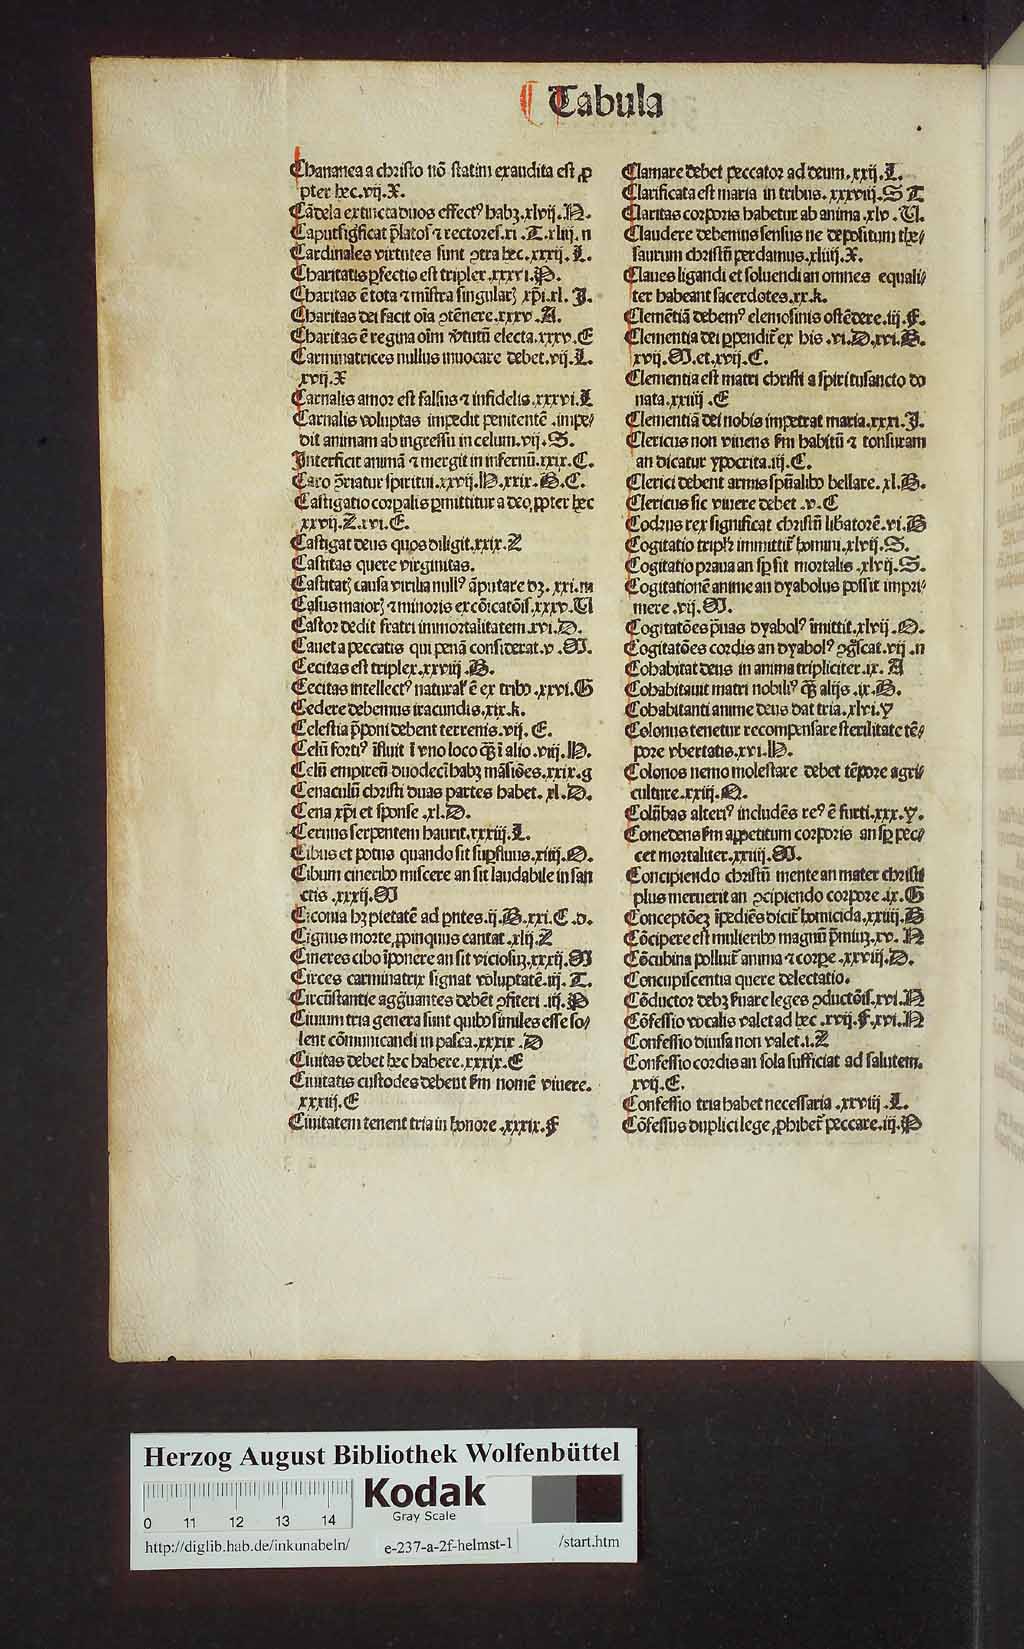 Tabula
Chananea a christo nō statim exaudita est ꝓ
pter hec.vij.X.
Cādela extincta duos effectꝰ habꝫ.xlvij.N.
Caput sigficat p̄latos ⁊ rectores.xi.T.xliij.n
Cardinales virtutes sunt ꝯtra hec.xxxij.L.
Charitatis ꝑfectio est triplex.xxxvi.P.
Charitas ē tota ⁊ mīstra singularꝫ xp̄i.xl.J.
Charitas dei facit oīa ꝯtēnere.xxxv.A.
Charitas ē regina oīm v̄tutū electa.xxxv.E
Carminatrices nullus inuocare debet.vij.L.
xvij.X
Carnalis amor est falsus ⁊ infidelis.xxxvi.L
Carnalis voluptas impedit penitentē.impe/
dit animam ab ingressu in celum.vij.S.
Interficit animā ⁊ mergit in infernū.xxix.C.
Caro ꝯ̄riatur spiritui.xxvij.N.xxix.B.C.
Castigatio corꝑalis ꝑmittitur a deo,ꝓpter hec
xxvij.Z.xvi.E.
Castigat deus quos diligit.xxix.Z
Castitas quere virginitas.
Castitatꝫ causa virilia nullꝰ āputare dꝫ.xxi.m
Casus maiorꝫ ⁊ minoris excōicatōis.xxxv.U
Castor dedit fratri immortalitatem.xvi.D.
Cauet a peccatis qui penā considerat.v.M.
Cecitas est triplex.xxviij.B.
Cecitas intellectꝰ natural' ē ex tribꝰ.xxvi.G
Cedere debemus iracundis.xix.k.
Celestia p̄poni debent terrenis.vij.E.
Celū fortiꝰ īfluit ī vno loco q̄ꝫ ī alio.viij.N.
Celū empireū duodecī habꝫ māsiōes.xxix.g
Cenaculū christi duas partes habet.xl.D.
Cena xp̄i et sponse.xl.D.
Ceruus serpentem haurit.xxxiij.L.
Cibus et potus quando sit suꝑfluus.xiiij.O.
Cibum cineribꝰ miscere an sit laudabile in san
ctis.xxxij.M
Ciconia hꝫ pietatē ad pntes.ij.B.xxi.C.d.
Cignus morte,ꝓpinquus cantat.xlij.Z
Cineres cibo īponere an sit viciosuꝫ.xxxij.M
Circes carminatrix signat voluptatē.iij.T.
Circūstantie agg̈uantes debēt ꝯfiteri.iij.P
Ciuium tria genera sunt quibꝰ similes esse so/
lent cōmunicandi in pasca.xxxix.D
Ciuitas debet hec habere.xxxix.E
Ciuitatis custodes debent ẜm nomē viuere.
xxxiij.E
Ciuitatem tenent tria in honore.xxxix.F
Clamare debet peccator ad deum.xxij.L.
Clarificata est maria in tribus.xxxviij.S T
Claritas corporis habetur ab anima.xlv.U.
Claudere debemus sensus ne depositum the/
saurum christū perdamus.xliiij.X.
Claues ligandi et soluendi an omnes equali/
ter habeant sacerdotes.xx.k.
Clemētiā debemꝰ elemosinis ostēdere.iij.F.
Clementia dei ꝑpenditᷣ ex his.vi.D.xvi.B.
xvij.M.et.xvij.C.
Clementia est matri christi a spiritusancto do
nata.xxiiij.E
Clementiā dei nobis impetrat maria.xxxi.J.
Clericus non viuens ẜm habitū ⁊ tonsuram
an dicatur ypocrita.iij.C.
Clerici debent armis spūalibꝰ bellare.xl.B.
Clericus sic viuere debet.v.C
Codrus rex significat christū libatorē.vi.B
Cogitatio triplꝭ immittitᷣ homini.xlvij.S.
Cogitatio praua an sꝑ sit mortalis.xlvij.S.
Cogitationē anime an dyabolus possit impri/
mere.vij.M.
Cogitatōes p̄uas dyabolꝰ īmittit.xlvij.O.
Cogitatōes cordis an dyabolꝰ ꝯg̊scat.vij.n
Cohabitat deus in anima tripliciter.ix.A
Cohabitauit matri nobiliꝰ q̄ꝫ alijs.ix.B.
Cohabitanti anime deus dat tria.xlvi.Y
Colonus tenetur recompensare sterilitatē tē/
pore vbertatis.xvi.N.
Colonos nemo molestare debet tēpore agri/
culture.xxiij.O.
Colūbas alteriꝰ includēs reꝰ ē furti.xxx.Y.
Comedens ẜm appetitum corporis an sꝑ pec/
cet mortaliter.xxiiij.M.
Concipiendo christū mente an mater christi
plus meruerit an ꝯcipiendo corpore.ix.G
Conceptōeꝫ īpediēs dicitᷣ homicida.xxiiij.B
Cōcipere est mulieribꝰ magnū p̄miuꝫ.xv.N
Cōcubina polluitᷣ anima ⁊ corpe.xxviij.D.
Concupiscentia quere delectatio.
Cōductor debꝫ ẜuare leges ꝯductōis.xvi.N
Cōfessio vocalis valet ad hec.xvij.F.xvi.N
Confessio diuisa non valet.i.Z
Confessio cordis an sola sufficiat ad salutem.
xvij.E.
Confessio tria habet necessaria.xxviij.L.
Cōfessus duplici lege ꝓhibetᷣ peccare.iij.P
Herzog August Bibliothek Wolfenbüttel
0 11 12 13 14
Kodak
Gray Scale
http://diglib.hab.de/inkunabeln/ e-237-a-2f-helmst-1 /start.htm